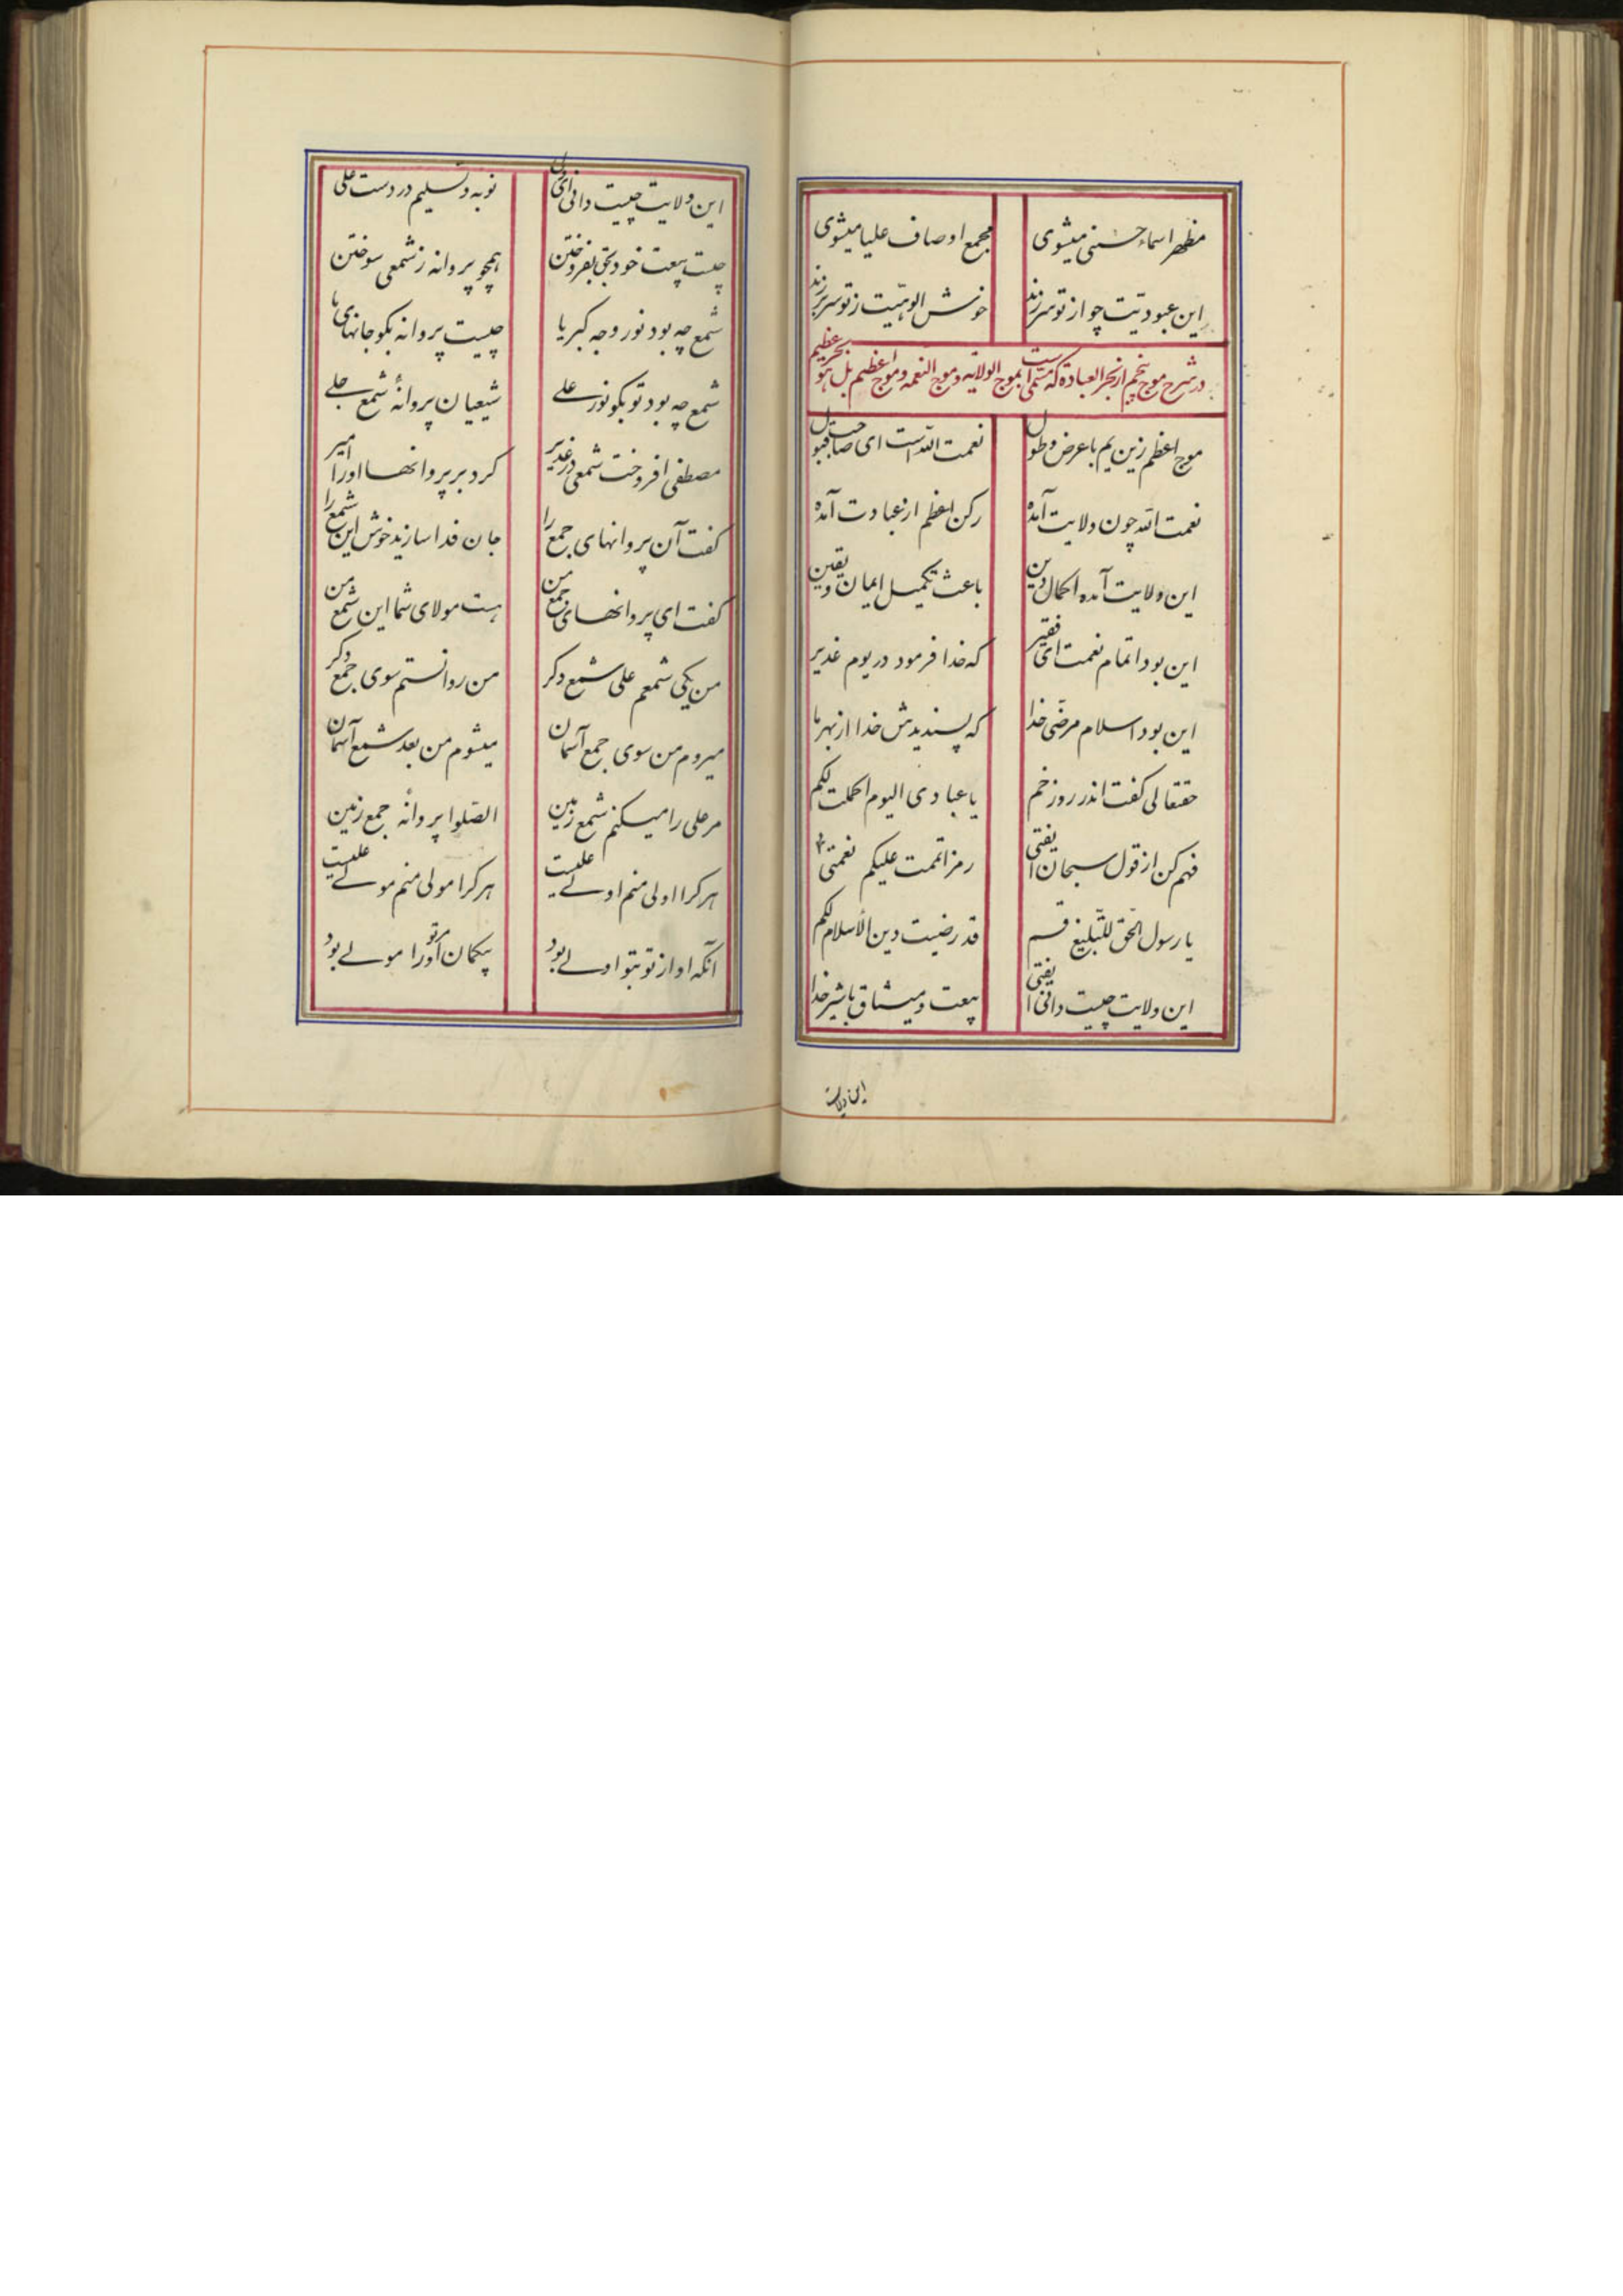 مظهر اسماء حسنی میشوی مجمع اوصاف علیا میشوی
این عبودیّت چو از تو سر زند خوش الوهیّت ز تو سر بر زند
در شرح موج پنجم از بحر العباده که مسمّی است بموج الولایه و موج النعمه و موج اعظم بل هو بحر عظیم
موج اعظم زین یم با عرض و طول نعمت اللّه است ای صاحب قبول
نعمت اللّه چون ولایت آمده رکن اعظم از عبادت آمده
این ولایت آمده اکمال دین باعث تکمیل ایمان و یقین
این بود اتمام نعمت ای فقیر که خدا فرمود در یوم غدیر
این بود اسلام مرضّی خدا که پسندیدش خدا از بهر ما
حقتعالی کفت اندر روز خم یا عبادی الیوم اکملت لکم
فهم کن از قول سبحان ایفتی رمز اتممت علیکم نعمتی
یا رسول الحق للتّبلیغ قم قد رضیت دین الأسلام لکم
این ولایت چیست دانی ایفتی بیعت و میثاق با شیر خدا
این ولایت
این ولایت چیست دانی ای ولی توبه و تسلیم در دست علی
چیست بیعت خود بحق بفروختن همچو پروانه ز شمعی سوختن
شمع چه بود نور وجه کبریا چیست پروانه بکو جانهای ما
شمع چه بود تو بکو نور علے شیعیان پروانهٔ شمع جلے
مصطفی افروخت شمعی در غدیر کرد بر پروانها او را امیر
کفت آن پروانهای جمع را جان فدا سازید خوش این شمع را
کفت ای پروانهای جمع من هست مولای شما این شمع من
من یکی شمعم علی شمع دکر من روانستم سوی جمع دکر
میروم من سوی جمع آسمان میشوم من بعد شمع آسمان
مر علی را میکنم شمع زمین الصّلوا پروانهٔ جمع زمین
هر کرا اولی منم اولے علیست هر کرا مولی منم مولے علیست
آنکه او از تو بتو اولے بود بیکمان او مر تو را مولے بود